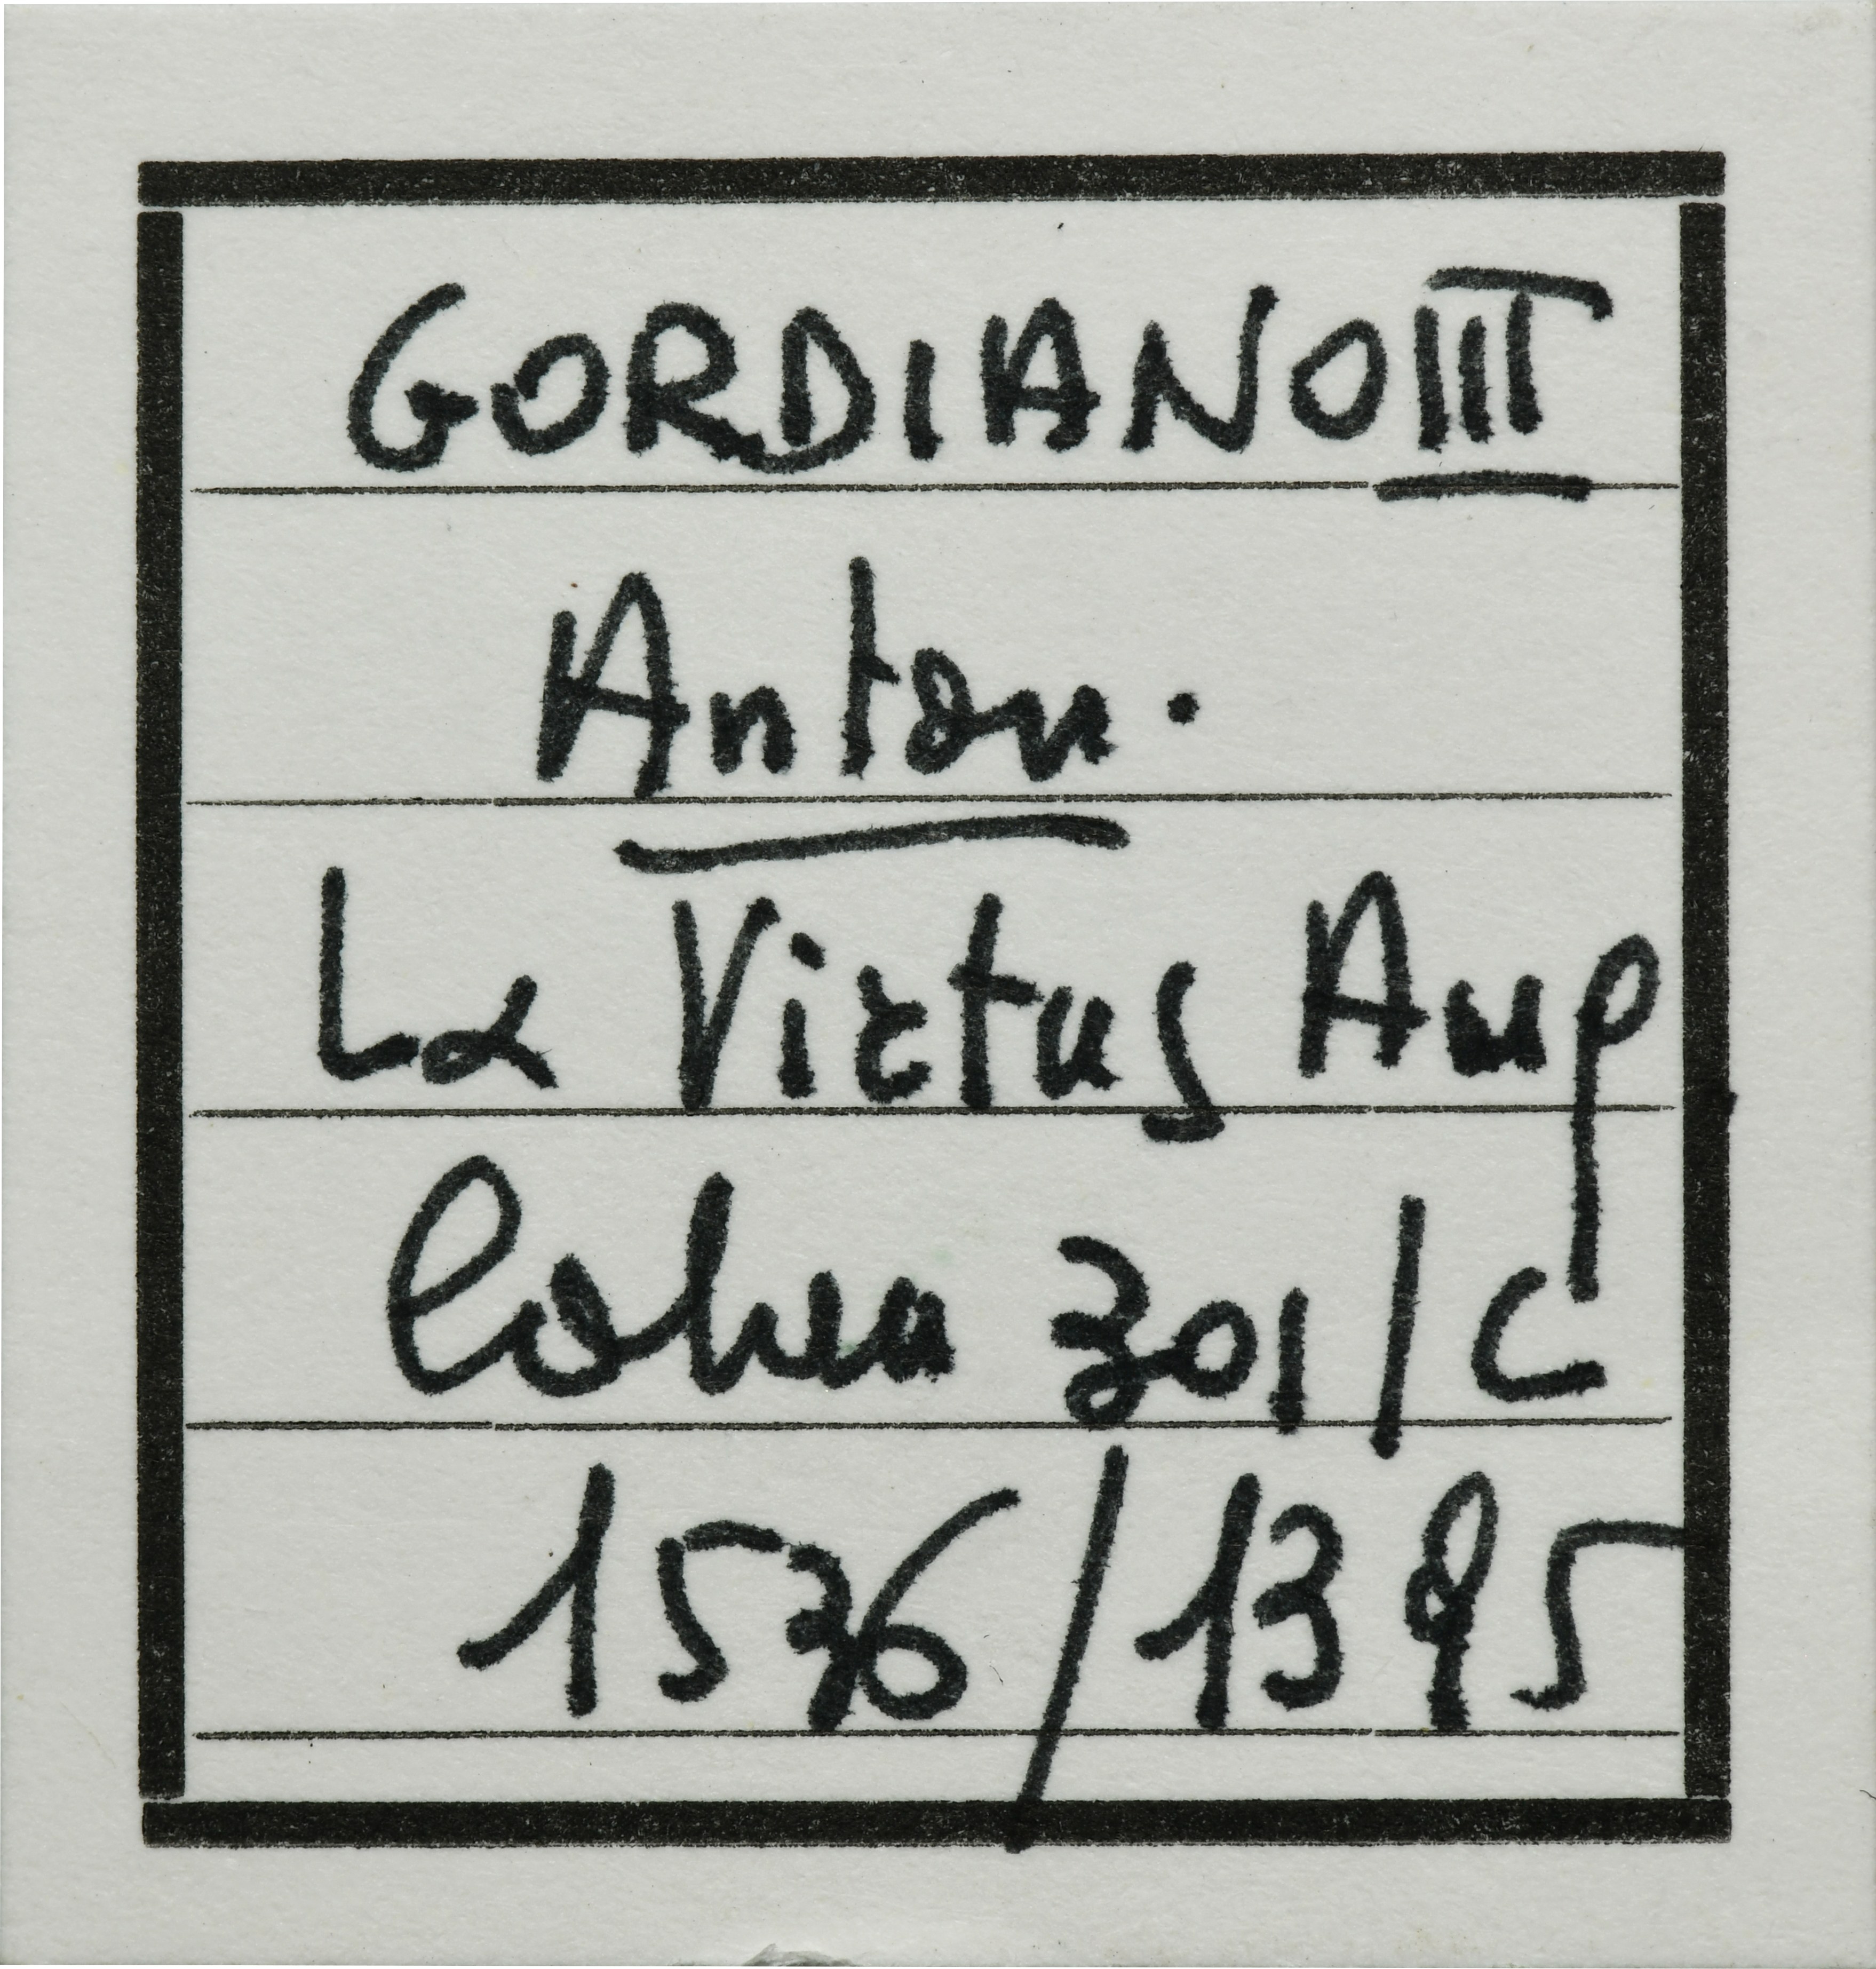 GORDIANO III
Anton.
La Virtus Aug
Cohen 301/C
1576/1395